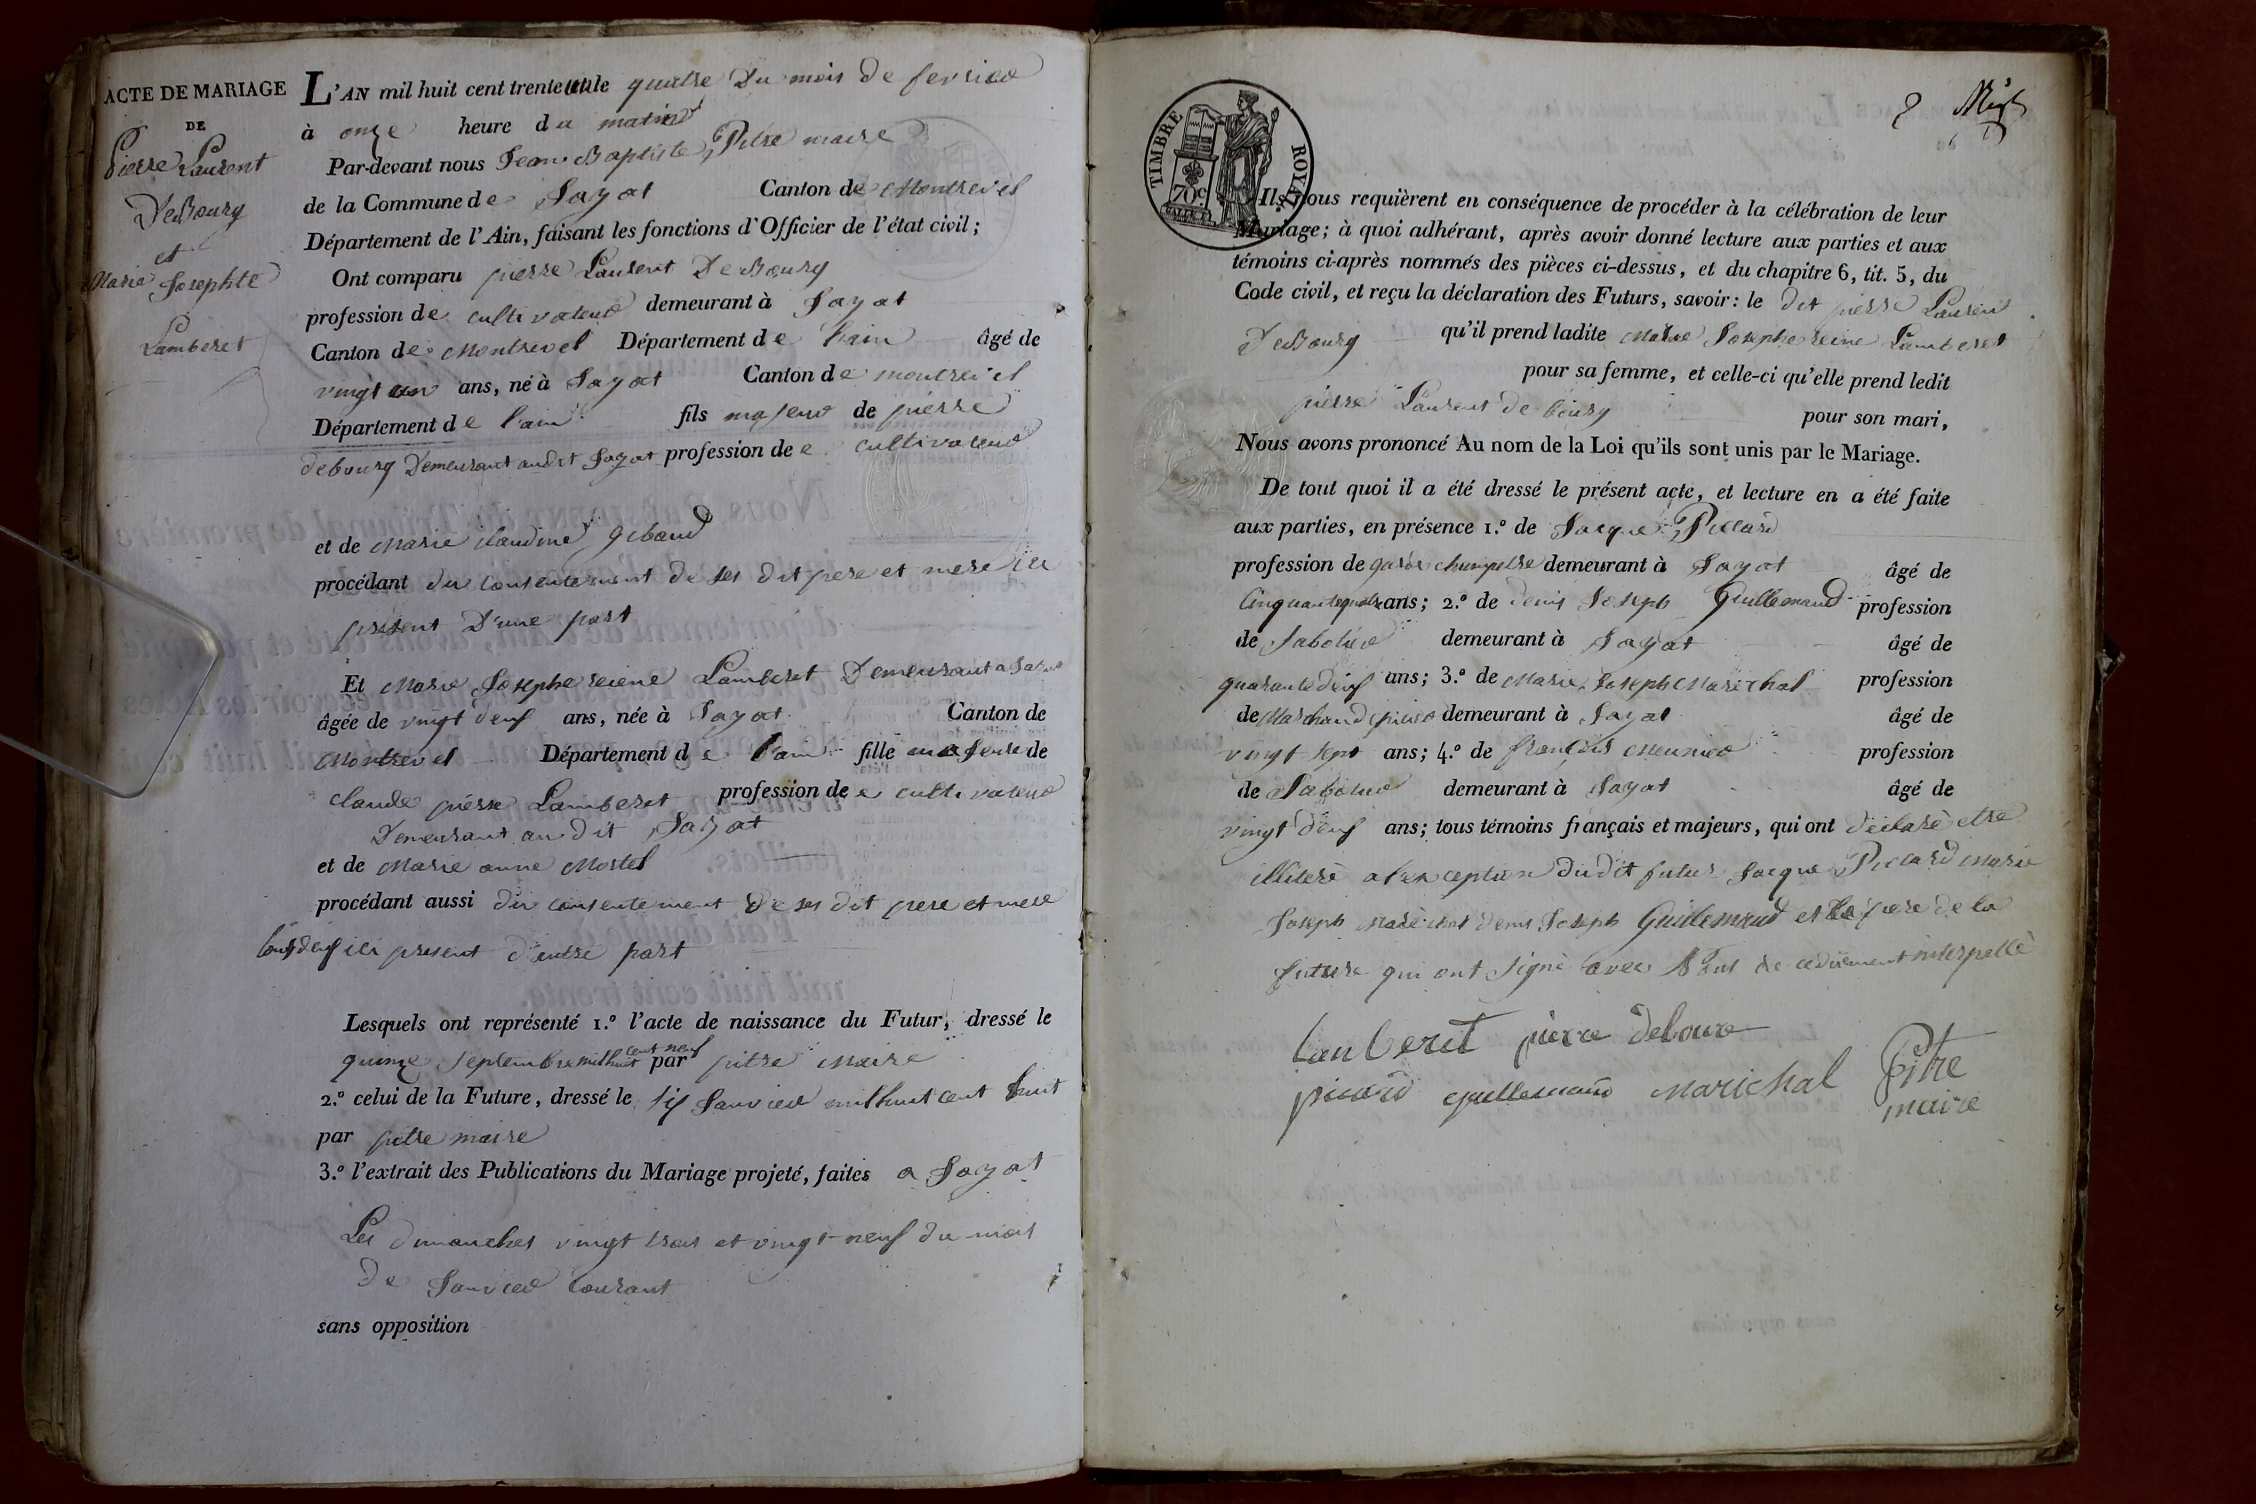 ACTE DE MARIAGE
DE
Pierre Laurent
DeBourg
et
Maria Josephte
Lamberet
L'AN mil huit cent trente un le quatre Du mois de fevrier
à onze heure du matin
Par-devant nous Jean Baptiste Pitre maire
de la Commune de Jayat Canton de Montrevel
Département de l'Ain, faisant les fonctions d'Officier de l'état civil;
Ont comparu pierre Laurent DeBourg
profession de cultivateur demeurant à Jayat
Canton de Montrevel Département de l'ain âgé de
vingt un ans, né à Jayat Canton de montrevel
Département de l'ain fils majeur de pierre
debourg Demeurant audit Jayat profession de cultivateur
et de Marie claudine gibaud
procédant du consentement de ses dit pere et mere ici
present D'une part
Et Marie Josephe reiene Lamberet Demeurant a Jayat
âgée de vingt deux ans, née à Jayat Canton de
Montrevel Département de l'ain fille majeure de
claude pierre Lamberet profession de cultivateur
Demeurant au dit Jayat
et de Marie anne Mortel
procédant aussi du consentement de ses dit pere et mere
tous deux ici present d'autre part
Lesquels ont représenté 1.º l'acte de naissance du Futur, dressé le
quinze septembre mil huit cent neuf par pitre Maire
2.º celui de la Future, dressé le six Janvier mil huit cent huit
par pitre maire
3.º l'extrait des Publications du Mariage projeté, faites a Jayat
Les dimanches vingt trois et vingt neuf du mois
de Janvier courant
sans opposition
TIMBRE ROYAL
70 c
2
Ils nous requièrent en conséquence de procéder à la célébration de leur
Mariage; à quoi adhérant, après avoir donné lecture aux parties et aux
témoins ci-après nommés des pièces ci-dessus, et du chapitre 6, tit. 5, du
Code civil, et reçu la déclaration des Futurs, savoir: le dit pierre Laurent
DeBourg qu'il prend ladite Marie Josephe reine Lamberet
pour sa femme, et celle-ci qu'elle prend ledit
pierre Laurent de bourg pour son mari,
Nous avons prononcé Au nom de la Loi qu'ils sont unis par le Mariage.
De tout quoi il a été dressé le présent acte, et lecture en a été faite
aux parties, en présence 1.º de Jacque Piccard
profession de garde champetre demeurant à Jayat âgé de
cinquante quatre ans; 2.º de denis Joseph Guillemaud profession
de Sabotier demeurant à Jayat âgé de
quarante deux ans; 3.º de Marie Joseph Marechal profession
de Marchand epicier demeurant à Jayat âgé de
vingt sept ans; 4.º de françois meunier profession
de Sabotier demeurant à Jayat âgé de
vingt deux ans; tous témoins français et majeurs, qui ont déclaré etre
illiteré a l'exception dudit futur Jacque Piccard Marie
Joseph Maréchal denis Joseph Guillemaud et le pere de la
future qui ont signé avec Nous de ce dûement interpellé
lamberet pierre debour
picard guillemaud Marichal Pitre
maire